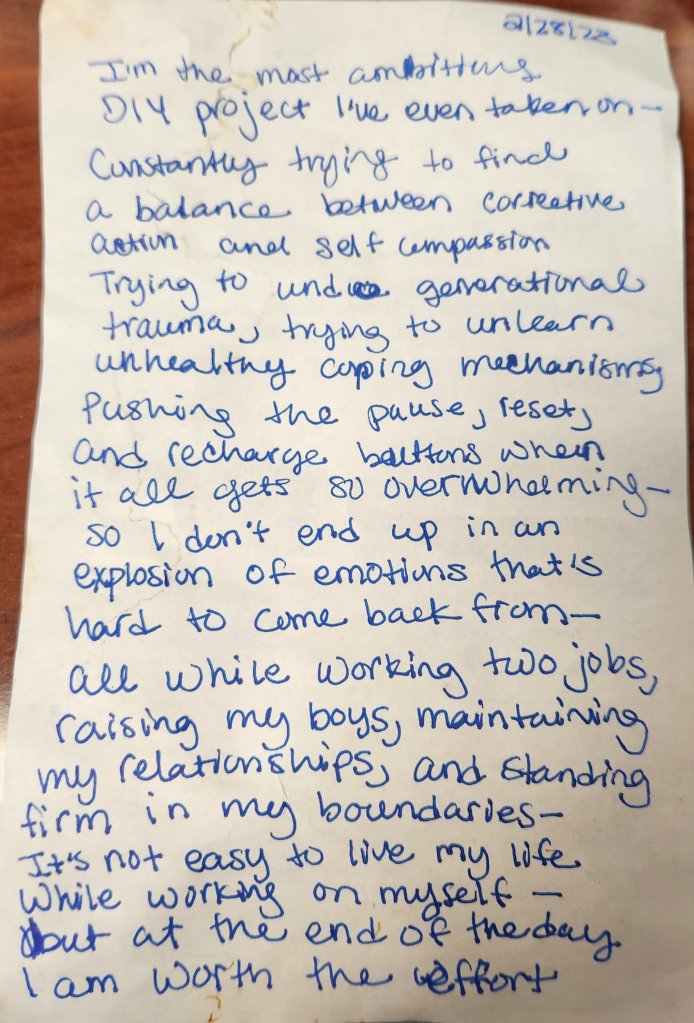 2/28/23
I'm the most ambitious
DIY project I've even taken on—
Constantly trying to find
a balance between corrective
action and self compassion
Trying to undo generational
trauma, trying to unlearn
unhealthy coping mechanisms,
Pushing the pause, reset,
and recharge buttons when
it all gets so overwhelming—
so I don't end up in an
explosion of emotions that's
hard to come back from—
all while working two jobs,
raising my boys, maintaining
my relationships, and standing
firm in my boundaries—
It's not easy to live my life
While working on myself—
but at the end of the day
I am worth the effort